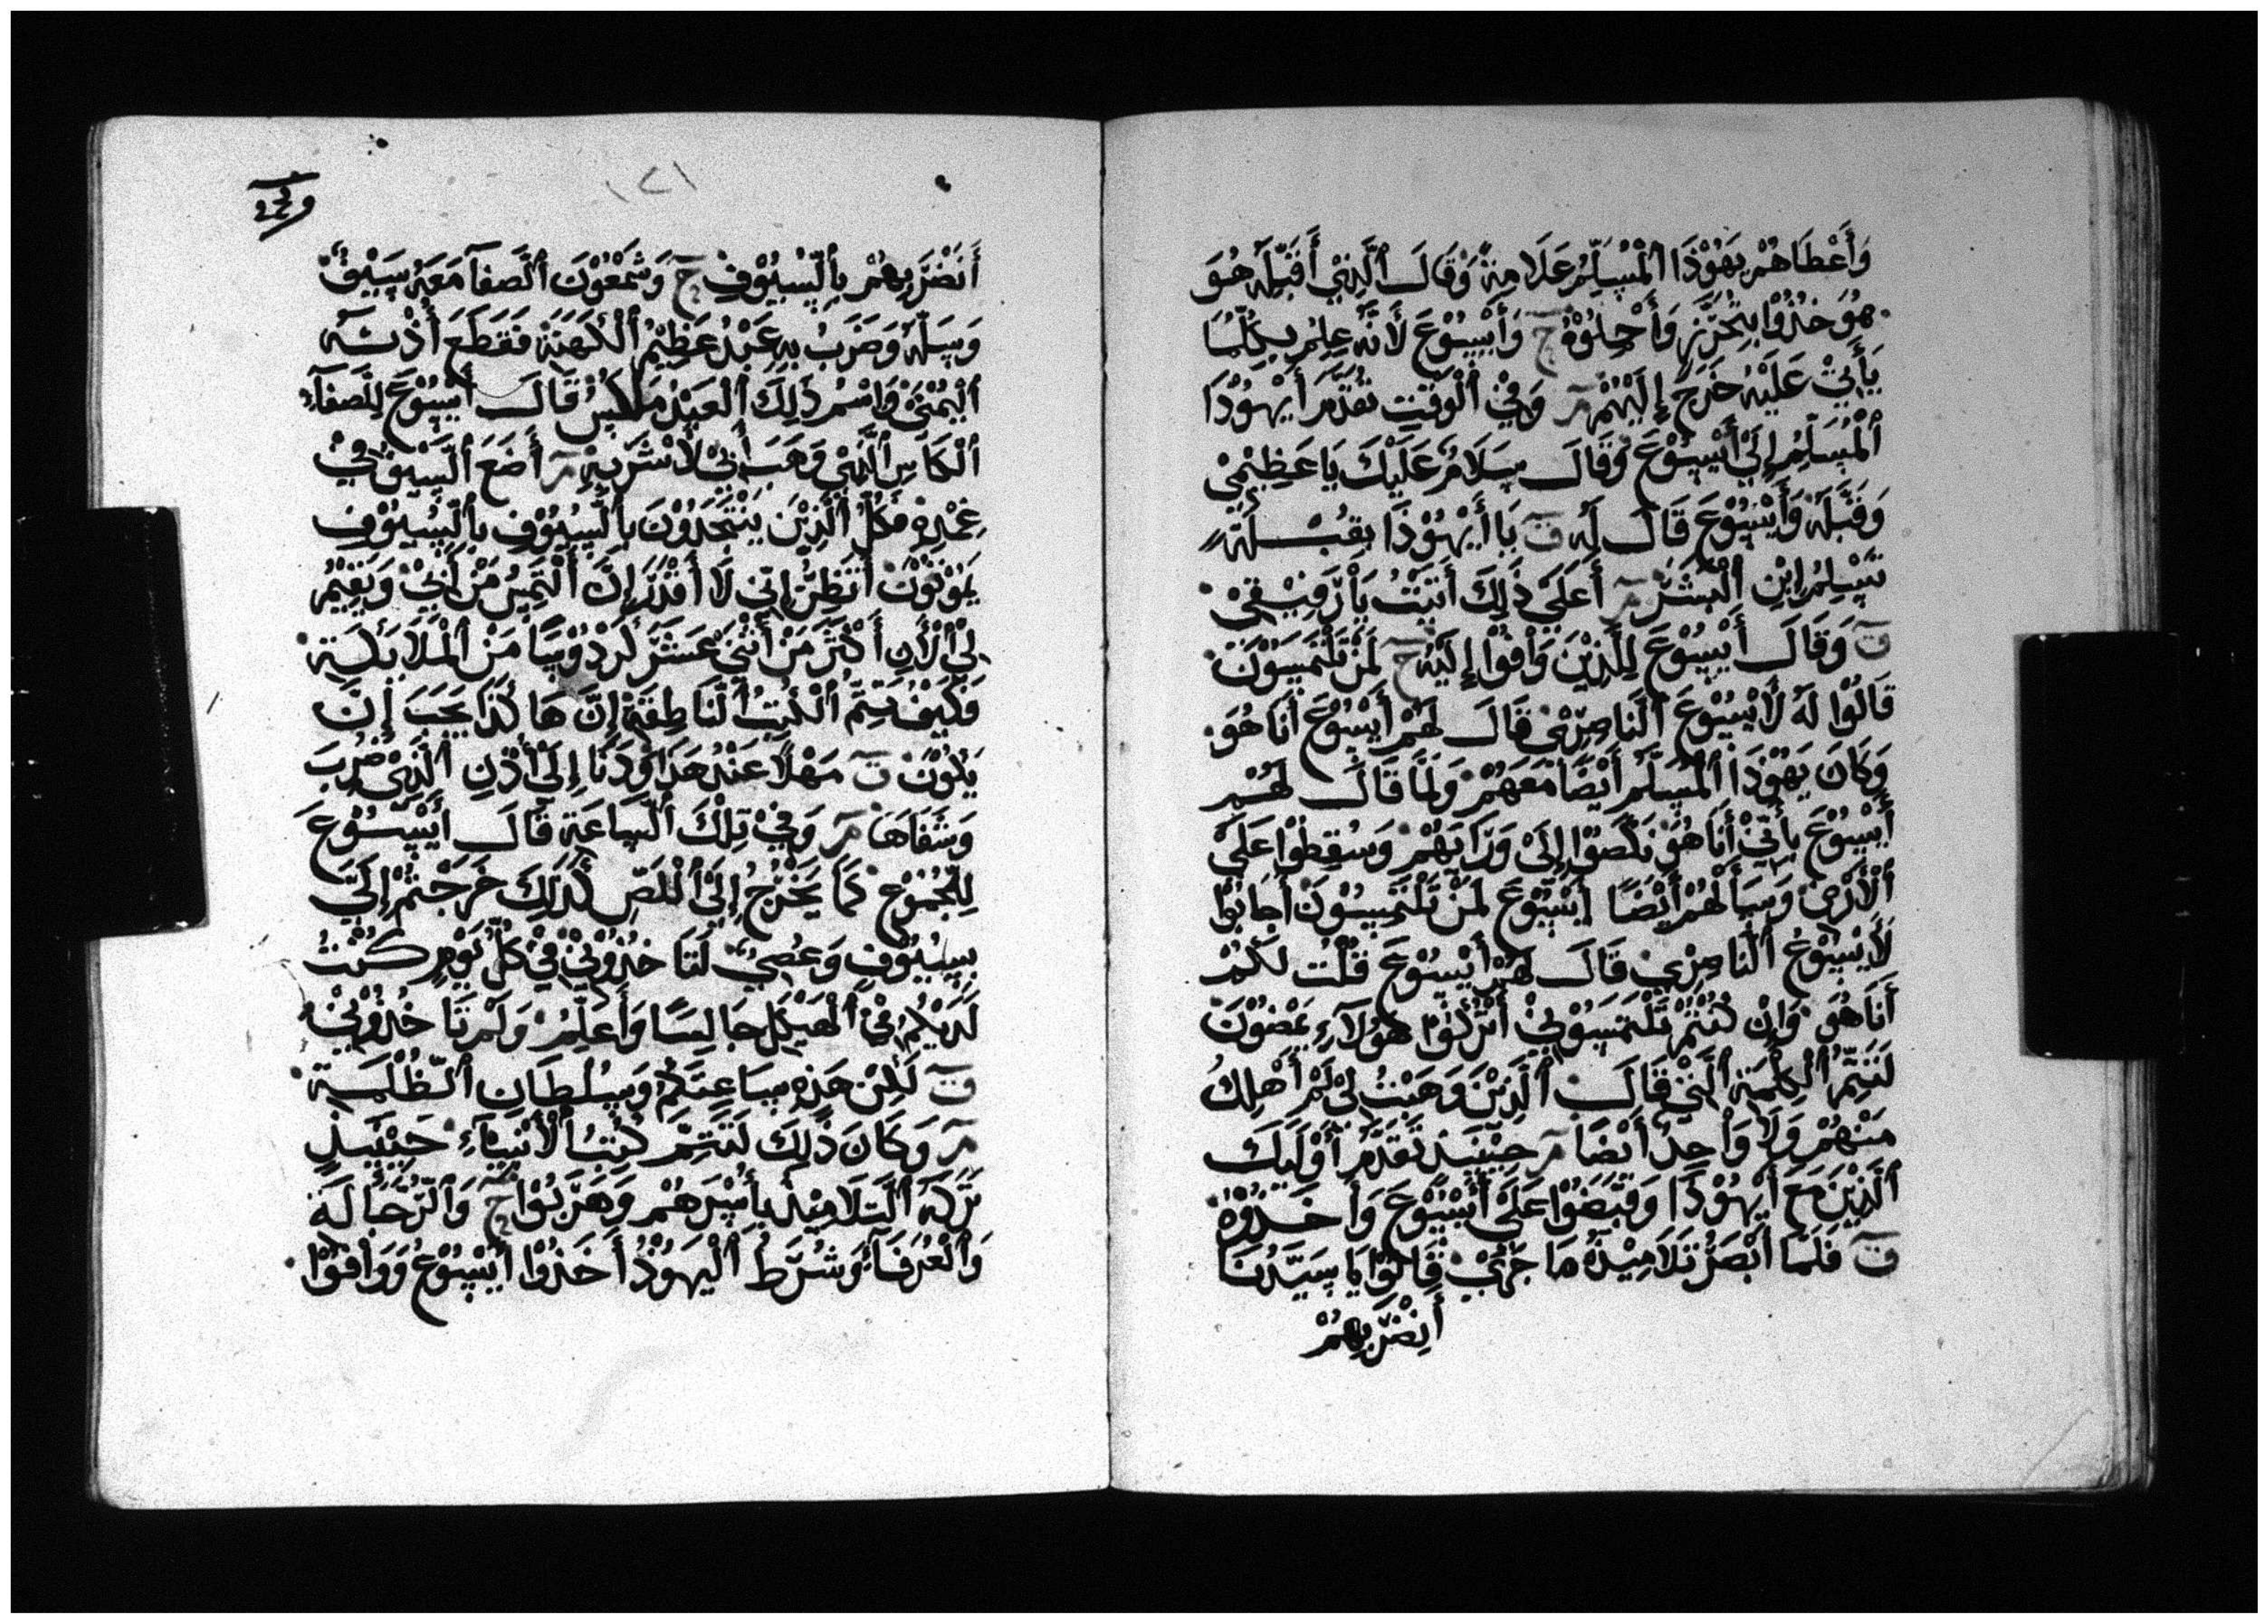 وَأَعْطَاهُمْ يَهُوْذَا ٱلْمُسَلِّمُ عَلَامَةً وَقَالَ ٱلَّذِيْ أَقَبِّلَهُ هُوَ
هُوَ خُذُوْا بِتَحَرُّزٍ وَأَحْمِلُوْهُ ح وَأَيْسُوْعَ لَأَنَّهُ عَلِمَ بِكُلِّمَا
يَأْتِيْ عَلَيْهُ خَرَجَ إِلَيْهُمْ مر وَفِيْ ٱلْوَقْتِ تَقَدَّمَ أَيْهُوْدَا
ٱلْمُسَلِّمُ إِلَىْ أَيْسُوْعَ وَقَالَ سَلَامُ عَلَيْكَ يَا عَظِيْمِيْ
وَقَبَّلَهُ وَأَيْسُوْعَ قَالَ لَهُ ق يَا أَيْهُوْذَا بِقُبْلَةٍ
تُسْلِمُ اِبْنِ ٱلْبَشَرْ مر أَعَلَىْ ذَلِكَ أَتَيْتُ يَاْ رَفِيْقِيْ
ق وَقَالَ أَيْسُوْعَ لِلَّذِيْنَ وَاْفَوْا إِلَيْهُ ح لَمَنْ تَلْتَمِسُوْنَ
قَالُوْا لَهُ لَأَيْسُوْعَ ٱلْنَاصِرِيْ قَالَ لَهُمْ أَيْسُوْعَ أَنَا هُوَ
وَكَانَ يَهُوْذَا ٱلْمُسَلِّمُ أَيْضًا مَعَهُمْ وَلَمَّا قَالَ لَهُمْ
أَيْسُوْعَ بِأَنِّيْ أَنَا هُوَ نَكَصُوْا إِلَىْ وَرَايَهُمْ وَسُقِطُوْا عَلَىْ
ٱلْأَرْضِ وَسَأَلَهُمْ أَيْضًا أَيْسُوْعَ لَمَنْ تَلْتَمِسُوْنَ أَجَابُوْا
لَأَيْسُوْعُ ٱلْنَاصِرْيِ قَالَ لَهُمْ أَيْسُوْعَ قُلْتُ لَكُمْ
أَنَا هُوَ وَإِنْ كُنْتُمْ تَلْتَمِسُوْنِيْ أَتْرُكُوْا هَوُلَآءِ يَمْضُوْنَ
لَتَتِمَّ ٱلْكَلِمَةِ ٱلَّتِيْ قَالَ ٱلَّذِيْنَ وَهَبْتَ لِيْ لَمْ أُهْلِكُ
مَنْهُمْ وَلَا وَاْحِدُ أَيْضًا مر حِيْنَيِذٍ تَقَدَّمَ أَوْلَيِكَ
ٱلَّذِيْنَ مَعَ أَيْهُوْدَا وَقَبَضُوْا عَلَىْ أَيْسُوْعَ وَأَخَذُوْهُ
ق فَلَمَّا أَبْصَرُ تَلَامِيْذَهُ مَا جَرَىْ قَالُوْا يَا سَيِّدُنَا
أَنِضْرِبِهُمْ
١٢١
أَنَضْرِبِهُمْ بِٱلْسُيُوْفِ ح وَشَمْعُوْنَ ٱلْصَّفَآ مَعَهُ سَيْفُ
وَسَلَّهُ وَضَرَبُ بِهِ عَبْدُ عَظِيْمُ ٱلْكَهَنَةَ فَقَطَعَ أُذْنَهُ
ٱلْيُمْنَىْ وَاسْمُ ذَلِكَ ٱلْعَبْدُ مَلَاسُ قَالَ أَيْسُوْعَ لِلْصَّفَآءِ
ٱلْكَاسِ ٱلَّذِيْ وَهَبَ أَبِيْ لَأَشْرَبِهْ مر أَضَعَ ٱلْسَّيْفُ فِيْ
غِمْدِهِ فَكُلُّ ٱلَّذِيْنَ يَنْتَجَدُوْنَ بِٱلْسُيُوْفِ بِٱلْسُيُوْفِ
يَمُوْتُوْنَ أَتَظِنُّ إِنِّي لَا أَقْدَرَ إِنَّ أَلْتَمِسُ مَنْ أَبِيْ وَيُقِيْمُ
لِيْ ٱلْأَنِ أَكْثَرَ مَنْ أَثْنَيْ عَشَرَ كَرْدُوْسًا مَنْ ٱلْمَلَايَكَةِ
فَكَيْفَ تَتِمَّ ٱلْكُتُبُ ٱلْنَّاطِقَةِ إِنَّ هَا كَذَا يَجِبَ إِنَّ
يَكُوْنَ ق مَهْلًا عَنْدَ هَذَا وَدَنَا إِلَىْ أُذْنِ ٱلَّذِيْ ضُرِبَ
وَشَفَاهَا مر وَفِيْ تِلْكَ ٱلْسَّاعَةِ قَالَ أَيْسُوْعَ
لِلْجُمُوْعِ كَمَا يَخْرُجُ إِلَىْ ٱلْلَصِّ كَذَلِكَ خَرَجْتُمْ إِلَيَّ
بِسُيُوْفٍ وَعُصِيْ لَتَا خُذُوْنِيْ فِيْ كُلُّ يَوْمِ كُنْتُ
لَدَيْكُمُ فِيْ ٱلْهَيْكَلِ جَالِسًا وَأُعَلِّمُ وَلَمْ تَا خُذُوْنِيْ
ق لَكِنْ هَذِهِ سَاعِتَكُمْ وَسُلْطَانِ ٱلْظُّلْمَةِ
مر وَكَانَ ذَلِكَ لَتَتِمَّ كُتُبُ ٱلْأَنْبِيَآءِ حِيْنَيِذٍ
تَرَكَهُ ٱلْتَّلَامِيْذُ بِأَسْرَهُمْ وَهَرَبُوْا ح وَٱلْرَّجَّالَةُ
وَٱلْعُرَفَآءِ وَشُرَطُ ٱلْيَهُوْدُ أَخَذُوْا أَيْسُوْعُ وَوَاْفَوْا